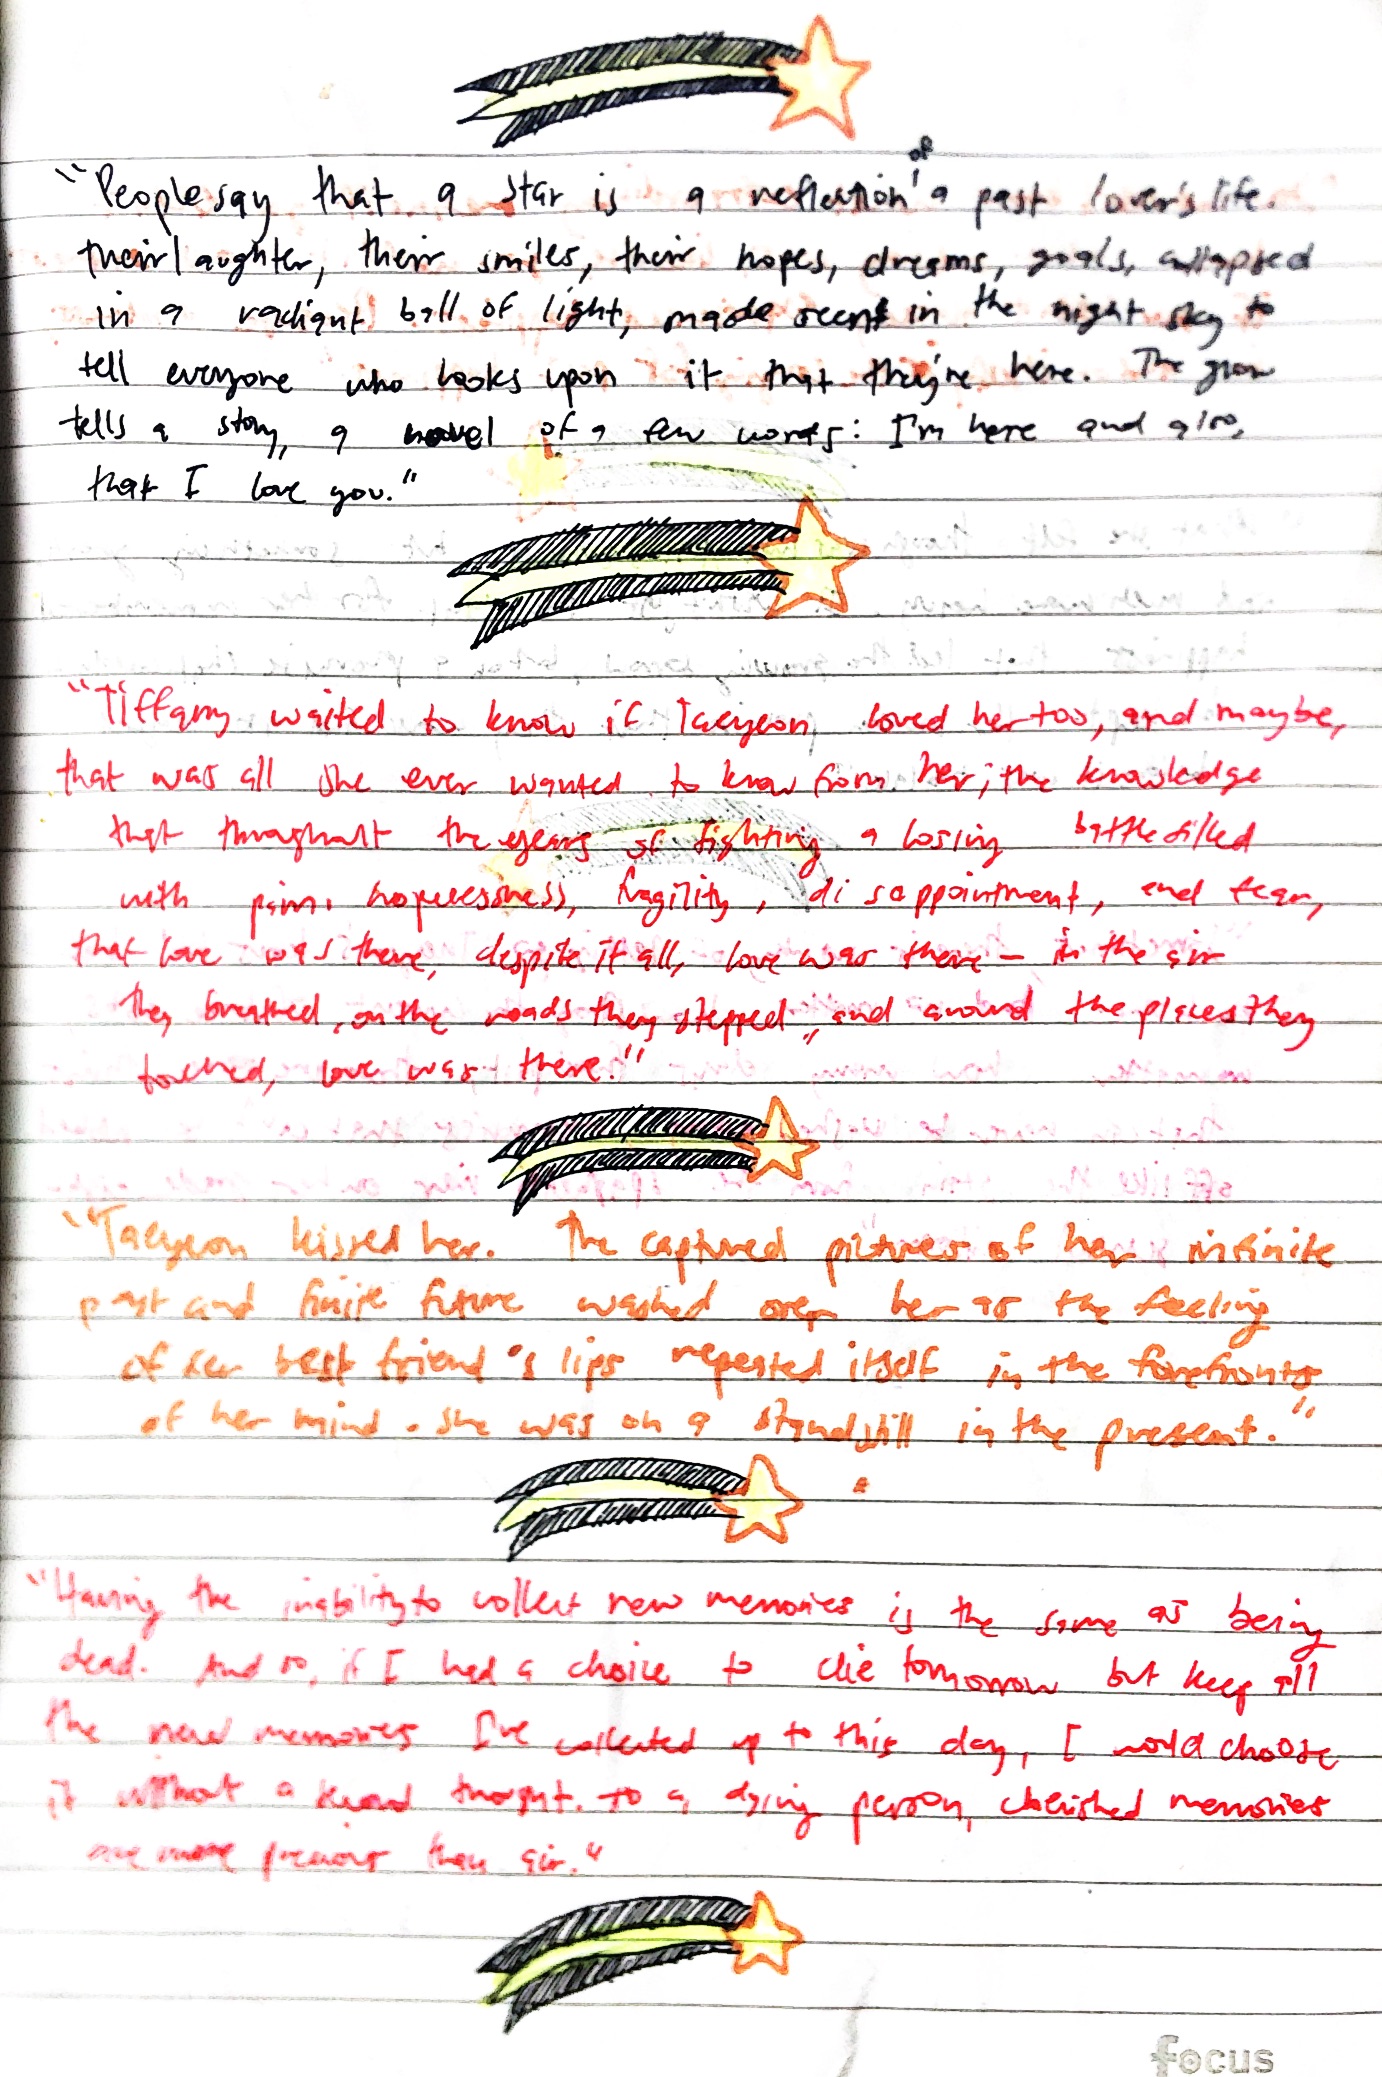 "People say that a star is a reflection of a past lover's life.
their laughter, their smiles, their hopes, dreams, goals, collapsed
in a radiant ball of light, made seen in the night sky to
tell everyone who looks upon it that they're here. The glow
tells a story, a novel of a few words: I'm here and also,
that I love you."
"Tiffany waited to know if Taeyeon loved her too, and maybe,
that was all she ever wanted to know from her; the knowledge
that throughout the years of fighting a losing battle filled
with pain, hopelessness, fragility, disappointment, and fear,
that love was there, despite it all, love was there – in the air
they breathed, on the roads they stepped, and around the places they
touched, love was there."
"Taeyeon kissed her. The captured pictures of her infinite
past and finite future washed over her as the feeling
of her best friend's lips repeated itself in the forefronts
of her mind. She was on a standstill in the present."
"Having the inability to collect new memories is the same as being
dead. And so, if I had a choice to die tomorrow but keep all
the new memories I've collected up to this day, I would choose
it without a second thought. To a dying person, cherished memories
are more precious than air."
focus